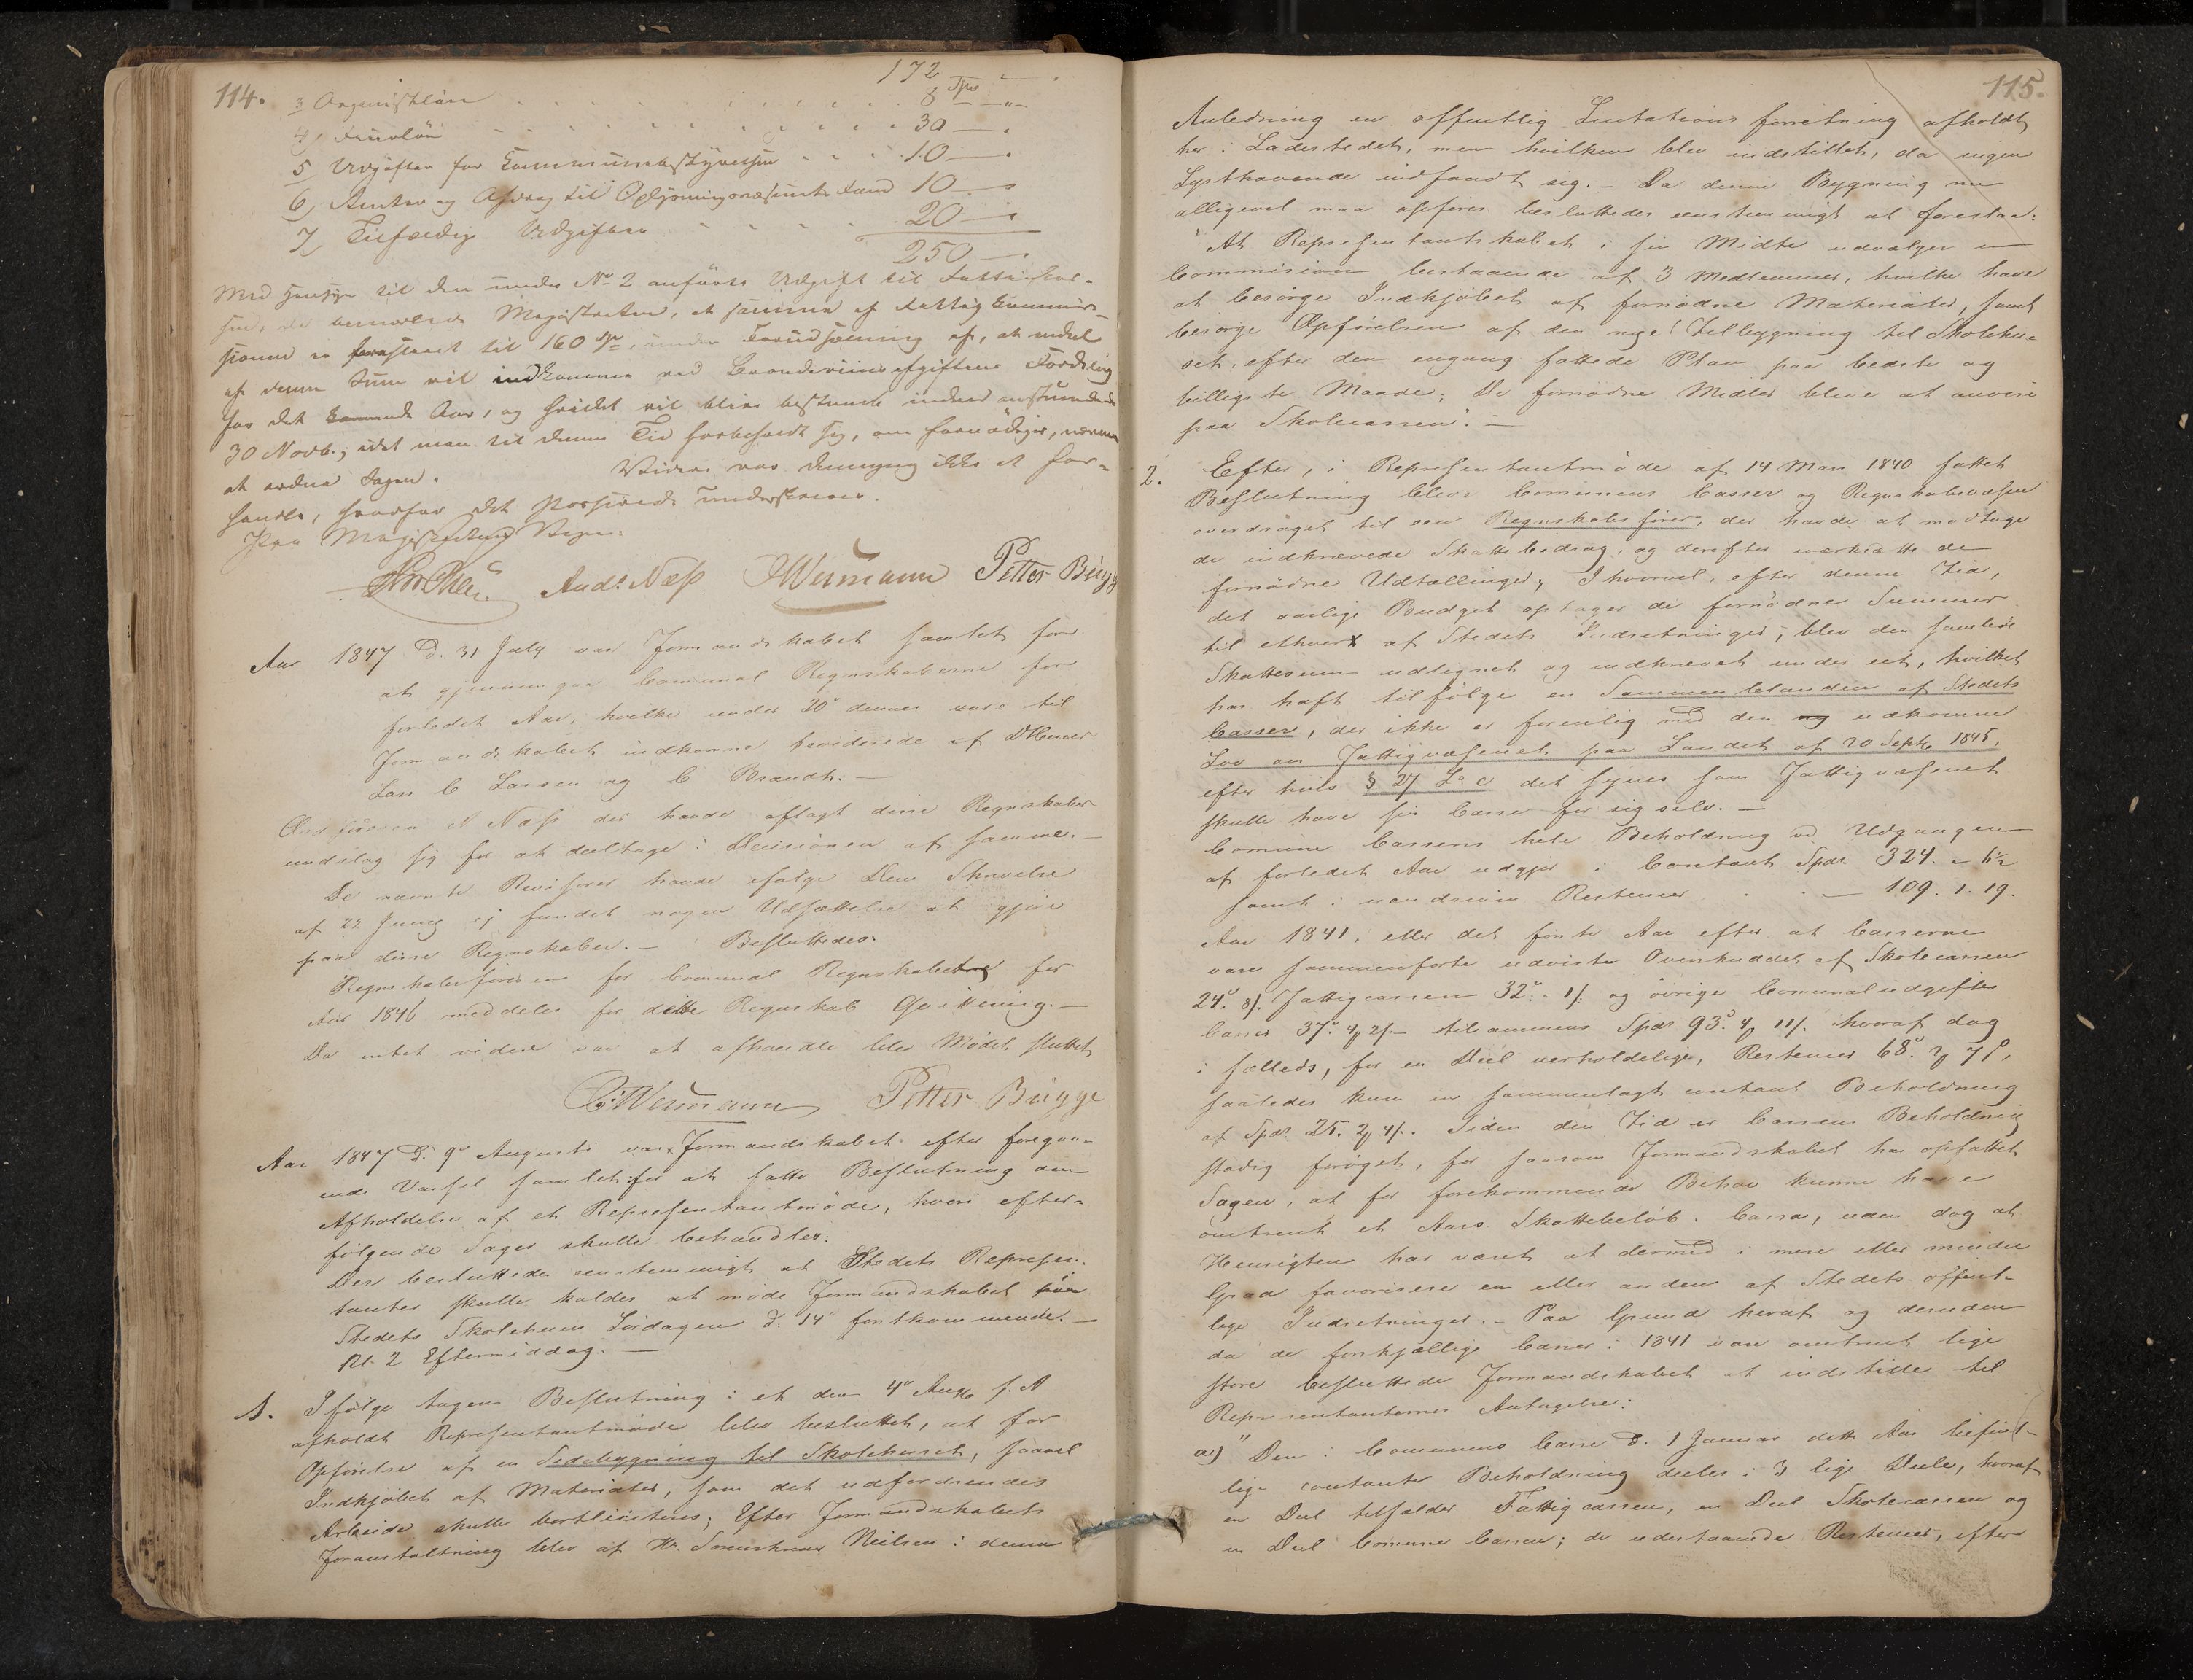 114.
172
3 Organistløn 8 Spd - " -
4, Fruerløn 30 — .
5 Udgifter for Kommunebestyrelsen 10 — .
6, Renter og Afdrag til Oplysningsvæsenets Fond 10 — "
7, Tilfældige Udgifter 20 — "
250 —
Med Hensyn til den under No 2 anførte Udgift til Fattigkas-
sen, da bemærkede Magistraten, at samme af Fattigkommis-
sionen er foreslaaet til 160 Spd, under Forudsætning af, at endeel
af denne Sum vil indkomme ved Brændeviinsafgiftens Fordeling
for det kommende Aar, og hvilket vil blive bestemt inden anstundende
30 Novb.; idet man til denne Tid forbeholdt sig, om fornødiges, nærmere
at ordne Sagen.
Videre var dennegang ikke at for-
handle, hvorfor det Passerede underskreves.
Paa Magistratens Vegne:
Ands. Næss Wermann Petter Bugge
Aar 1847 d. 31 July var Formandskabet samlet for
at gjennemgaa Communal Regnskaberne for
forledet Aar, hvilke under 20de dennes vare til
Formandskabet indkomne reviderede af DHerrer
Lars C Larsen og C Brandt. —
Ordføreren A Næss der havde aflagt disse Regnskaber
undslog sig for at deeltage i Decisionen af samme. —
De nævnte Revisorer havde ifølge Deres Skrivelse
af 22 Juny ej fundet nogen Udsættelse at gjøre
paa disse Regnskaber. — Besluttedes:
Regnskabsføreren for Communal Regnskabet for
Aar 1846 meddeles for dette Regnskab Qvittering. —
Da intet videre var at afhandle blev Mødet sluttet
Wermann Petter Bugge
Aar 1847 d. 9de Augusti var Formandskabet efter foregaa-
ende Varsel samlet for at fatte Beslutning om
Afholdelse af et Representantmøde, hvori efter-
følgende Sager skulle behandles:
Der besluttedes eenstemmigt at Stedets Represen-
tanter skulle kaldes at møde Formandskabet paa
Stedets Skolehuus Lørdagen d. 14de førstkommende. —
Kl. 2 Eftermiddag. —
1. Ifølge tagen Beslutning i et den 4de Aug. f. A
afholdt Representantmøde blev besluttet, at for
Opførelse af en Sidebygning til Skolehuset, saavel
Indkjøbet af Materialer, som det udfordrendes
Arbeide skulle bortliciteres; Efter Formandskabets
Foranstaltning blev af Hr. Sorenskriver Nielsen i denne
115.
Anledning en offentlig Licitations forretning afholdt
her i Ladestedet, men hvilken blev indstillet, da ingen
Lysthavende indfandt sig. — Da denne Bygning nu
alligevel maa opføres besluttedes eenstemmigt at foreslaa:
"At Representantskabet i sin Midte udvælger en
Commision bestaaende af 3 Medlemmer, hvilke have
at besørge Indkjøbet af fornødne Materialer, samt
besørge Opførelsen af den nye Tilbygning til Skolehu-
set, efter den engang fattede Plan paa bedste og
billigste Maade; De fornødne Midler bleve at anvise
paa Skolecassen". —
2. Efter, i Representantmøde af 14 Mars 1840 fattet
Beslutning bleve Communens Casser og Regnskabsvæsen
overdraget til een Regnskabsfører, der havde at modtage
de indkrævede Skattebidrag, og derefter iværksætte de
fornødne Udtællinger; Ihvorvel, efter denne Tid,
det aarlige Budget optager de fornødne Summer
til ethvert af Stedets Indretninger, blev den samlede
Skattesum udlignet og indkrævet under eet, hvilket
har haft tilfølge en Sammenblanden af Stedets
Casser, der ikke er forenlig med den udkomne
Lov om Fattigvæsenet paa Landet af 20 Septb 1845,
efter hvis § 27 La c det synes som Fattigvæsenet
skulle have sin Casse for sig selv. —
Commune Cassens hele Beholdning ved Udgangen
af forledet Aar udgjør i Contant Spdr 324. " 6½
samt i uinddrevne Restancer — 109. 1. 19.
Aar 1841, eller det første Aar efter at Casserne
vare sammenførte udviste Overskuddet af Skolecassen
24d. 8/. Fattigcassen 32d. " 1/. og øvrige Communaludgifter
Casser 37d. 4 2/. — tilsammens Spdr 93d. 4 11/. hvoraf dog
i fælleds, for en Deel uerholdelige, Restancer 68d. 2 7/.,
saaledes kun en sammenlagt contant Beholdning
af Spdr 25. 2 4/. Siden den Tid er Cassens Beholdning
stadig forøget, for saasom Formandskabet har opfattet
Sagen, at for forekommende Behov kunne have
omtrent et Aars Skattebeløb i Cassa, uden dog at
Hensigten har været at dermed i mere eller mindre
Grad favorisere en eller anden af Stedets offent-
lige Indretninger. — Paa Grund heraf og desuden
da de forskjællige Casser i 1841 var omtrent lige
store besluttede Formandskabet at indstille til
Representanternes Antagelse:
a) "Den i Communens Casse d. 1 Januar dette Aar befindt-
lige contante Beholdning deeles i 3 lige Dele, hvoraf
en Deel tilfalder Fattigcassen, en Deel Skolecassen og
en Deel Commune Cassen; de udestaaende Restancer, efter